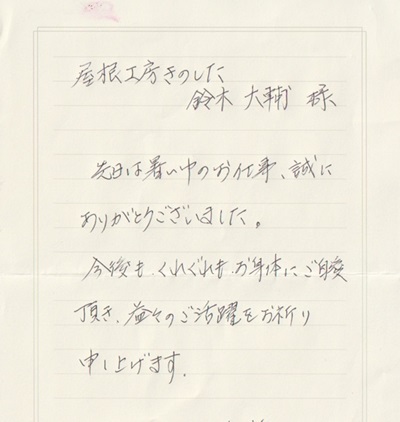 屋根工房きのした
鈴木 大輔 様
先日は暑い中のお仕事、誠に
ありがとうございました。
今後も、くれぐれもお身体にご自愛
頂き、益々のご活躍をお祈り
申し上げます。